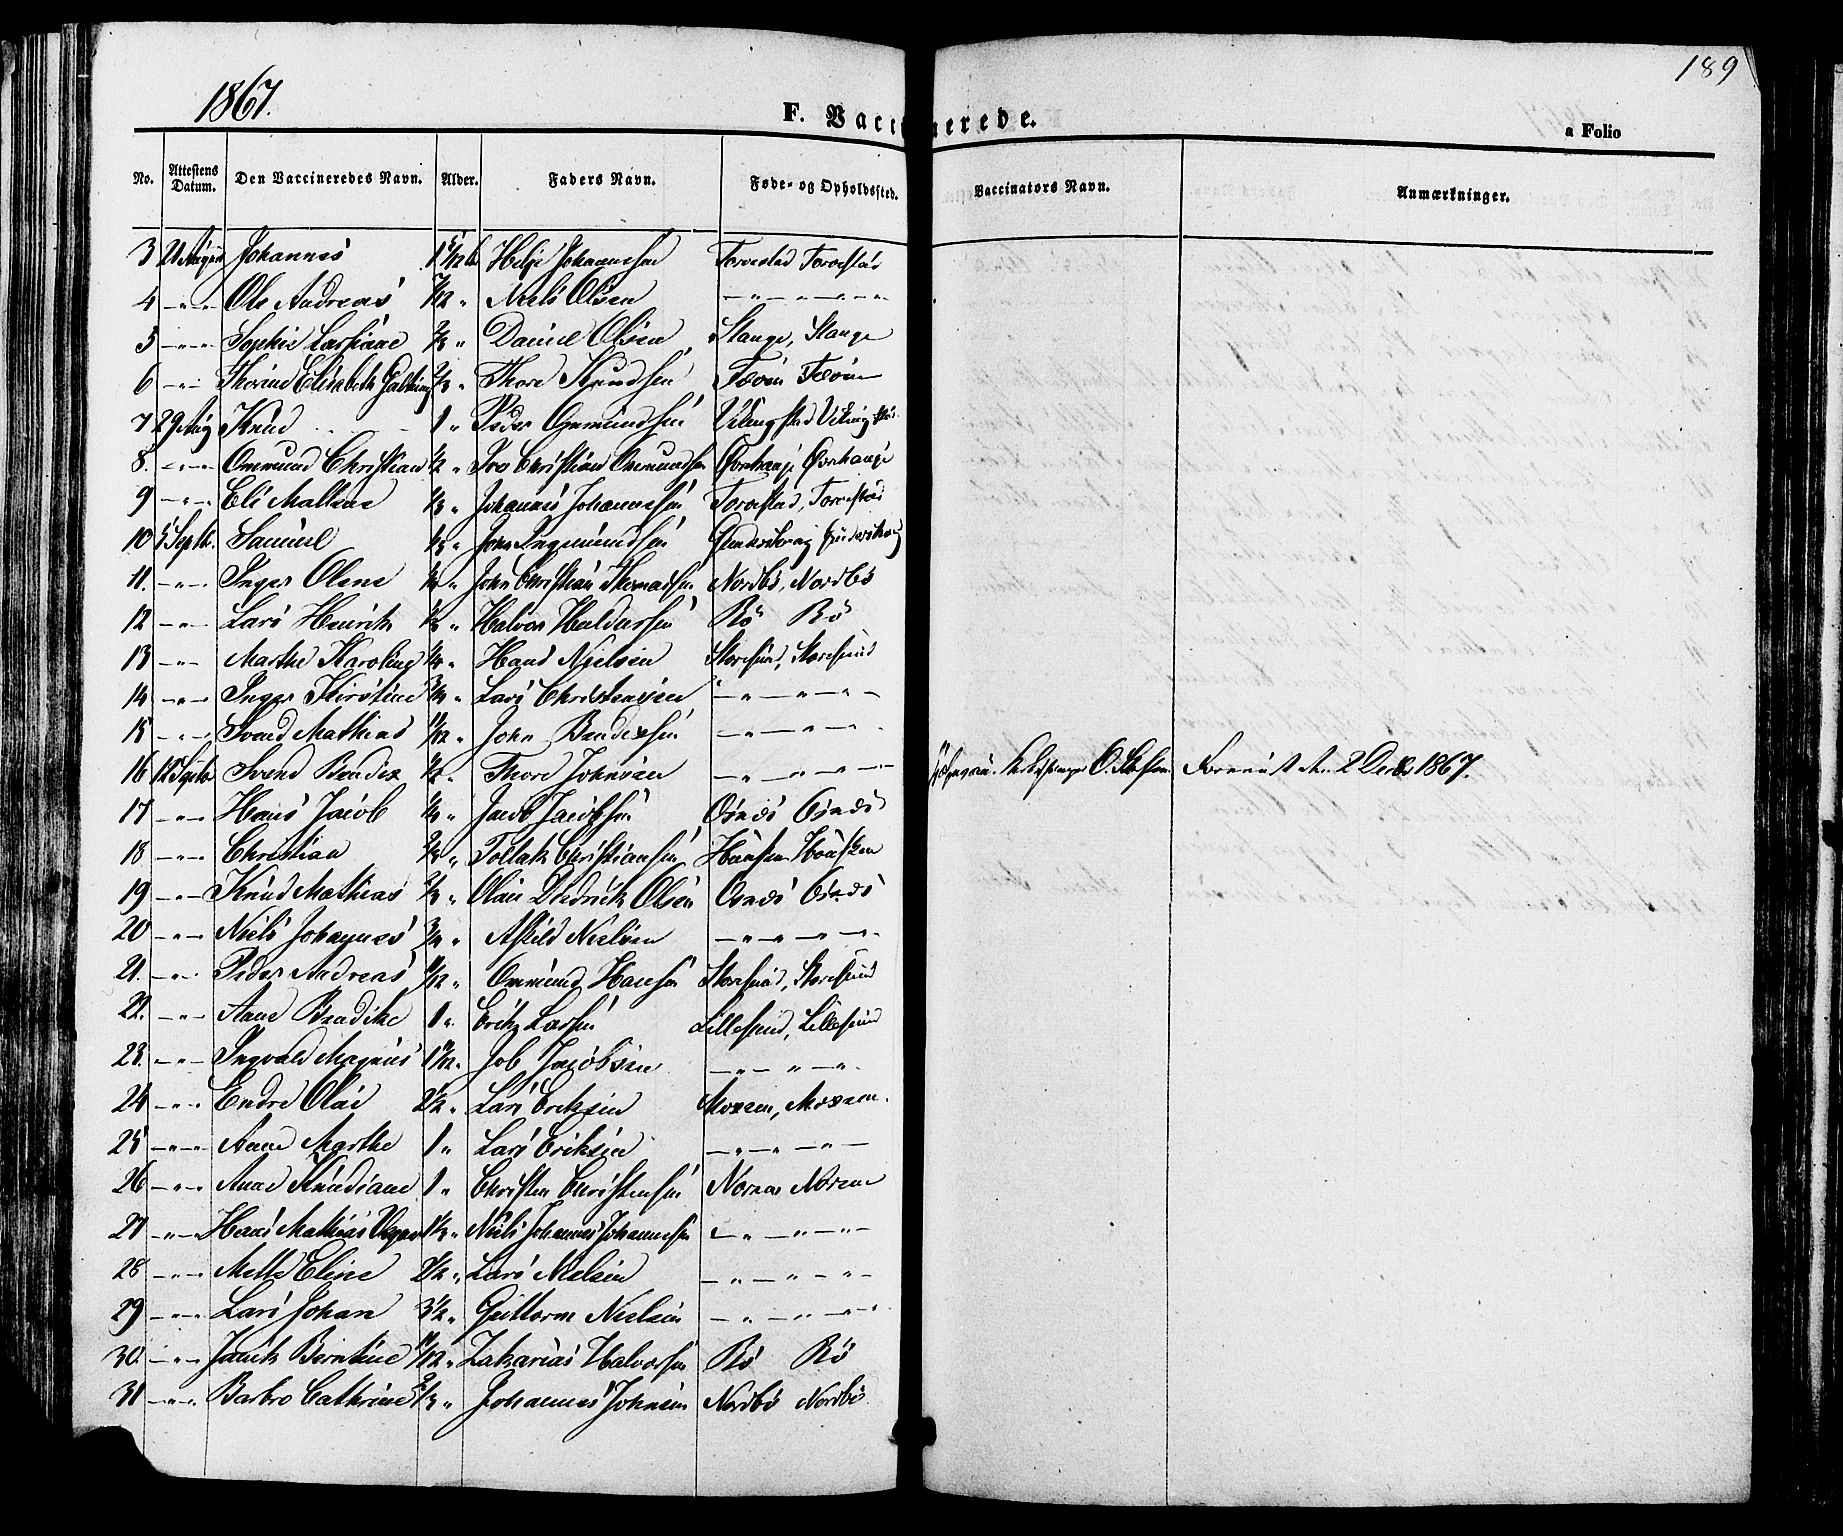 189
1867.
F. Vaccinerede.
a Folio
No. Attestens Datum. Den Vaccineredes Navn. Alder. Faders Navn. Føde- og Opholdssted. Vaccinators Navn. Anmærkninger.
3 21 August Johannes 1 5/12 Helge Johannessen Torvestad Torvestad
4 -"-"- Ole Andreas 7/12 " Niels Olsen -"-"-"-"
5 -"-"- Sophie Larsiane " Daniel Olsen Stange, Stange
6 -"-"- Thorine Elisabeth " Thore Knudsen Fæøen Fæøen
7 29 Aug Knud 1 " Peder Ommundsen Vikingstad Vikingstad
8. -"-"- Ommund Christian 1/2 " Christian Ommundsen Øvrehauge Øvrehauge
9 -"-"- Eli Maltene " Johannes Johannessen Torvestad, Torvestad
10 5 Septb. Samuel " John Ingemundsen
11. -"-"- Inger Oline " John Christian Thomassen Nordbø, Nordbø
12 -"-"- Lars Henrik " Halvor Haldorsen Bø Bø
13 -"-"- Marthe Karoline " Hans Nielsen Storesund, Storesund
14 -"-"- Inger Kirstine 3/4 " Lars Christensen -"-"-"-
15 -"-"- Svend Mathias 11/12 " John Bendixsen -"-"-"-
16 12 Septb Svend Bendix " Thore Johnsen -"-"-"- O. Forevist den 2 Decbr 1867.
17 -"-"- Hans Jacob " Jacob Jacobsen Osnæs Osnæs
18 -"-"- Christian " Tollak Christiansen Hausken Hausken
19 -"-"- Knud Mathias 2/3 " Olai Didrick Olsen Osnæs Osnæs
20 -"-"- Niels Johannes 3/4 " Askild Nielsen -"-"-"-"
21. -"-"- Peder Andreas 11/12 " Ommund Hansen Storesund, Storesund
22. -"-"- Anne Bendikte 1 " Erik Larsen Lillesund, Lillesund
23. -"-"- Ingvald Magnus Job Jacobsen -"-"-"-
24 -"-"- Endre Olai 2 1/2 " Lars Eriksen
25 -"-"- Anne Marthe 1 " Lars Eriksen -"-"-"-
26 -"-"- Anne Knudiane 1 " Christen Christensen Norem Norem
27 -"-"- Hans Mathias 1 1/2 " Niels Johannes Johannessen -"-"-"-
28 -"-"- Mette Eline 2 1/2 " Lars Nielsen -"-"-"-
29 -"-"- Lars Johan 3 1/2 " Guttorm Nielsen -"-"-"-
30. -"-"- Berntine 11/12 " Zakarias Halvorsen Bø Bø
31 -"-"- Barbro Cathrine 2/3 " Johannes Johnsen Nordbø Nordbø